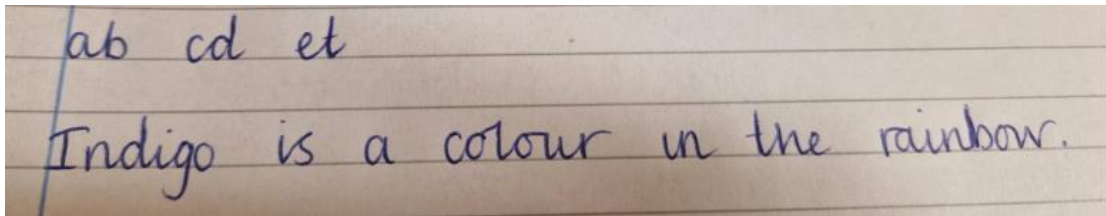 ab cd et
Indigo is a colour in the rainbow.